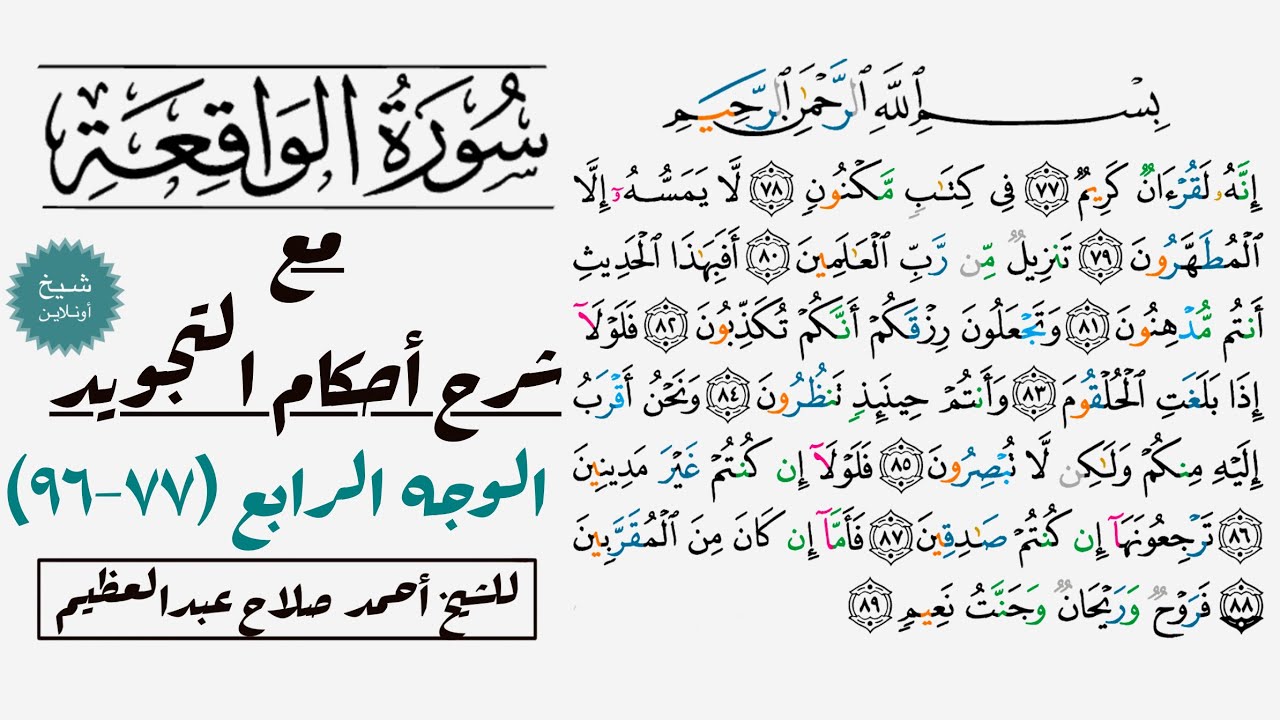 سُورَةُ الوَاقِعَةِ
مع
شرح أحكام التجويد
الوجه الرابع (٧٧-٩٦)
للشيخ أحمد صلاح عبدالعظيم
شيخ
أونلاين
بِسْمِ ٱللَّهِ ٱلرَّحْمَٰنِ ٱلرَّحِيمِ
إِنَّهُۥ لَقُرْءَانٌ كَرِيمٌ ٧٧ فِى كِتَٰبٍ مَّكْنُونٍ ٧٨ لَّا يَمَسُّهُۥٓ إِلَّا
ٱلْمُطَهَّرُونَ ٧٩ تَنزِيلٌ مِّن رَّبِّ ٱلْعَٰلَمِينَ ٨٠ أَفَبِهَٰذَا ٱلْحَدِيثِ
أَنتُم مُّدْهِنُونَ ٨١ وَتَجْعَلُونَ رِزْقَكُمْ أَنَّكُمْ تُكَذِّبُونَ ٨٢ فَلَوْلَآ
إِذَا بَلَغَتِ ٱلْحُلْقُومَ ٨٣ وَأَنتُمْ حِينَئِذٍ تَنظُرُونَ ٨٤ وَنَحْنُ أَقْرَبُ
إِلَيْهِ مِنكُمْ وَلَٰكِن لَّا تُبْصِرُونَ ٨٥ فَلَوْلَآ إِن كُنتُمْ غَيْرَ مَدِينِينَ
٨٦ تَرْجِعُونَهَآ إِن كُنتُمْ صَٰدِقِينَ ٨٧ فَأَمَّآ إِن كَانَ مِنَ ٱلْمُقَرَّبِينَ
٨٨ فَرَوْحٌ وَرَيْحَانٌ وَجَنَّتُ نَعِيمٍ ٨٩